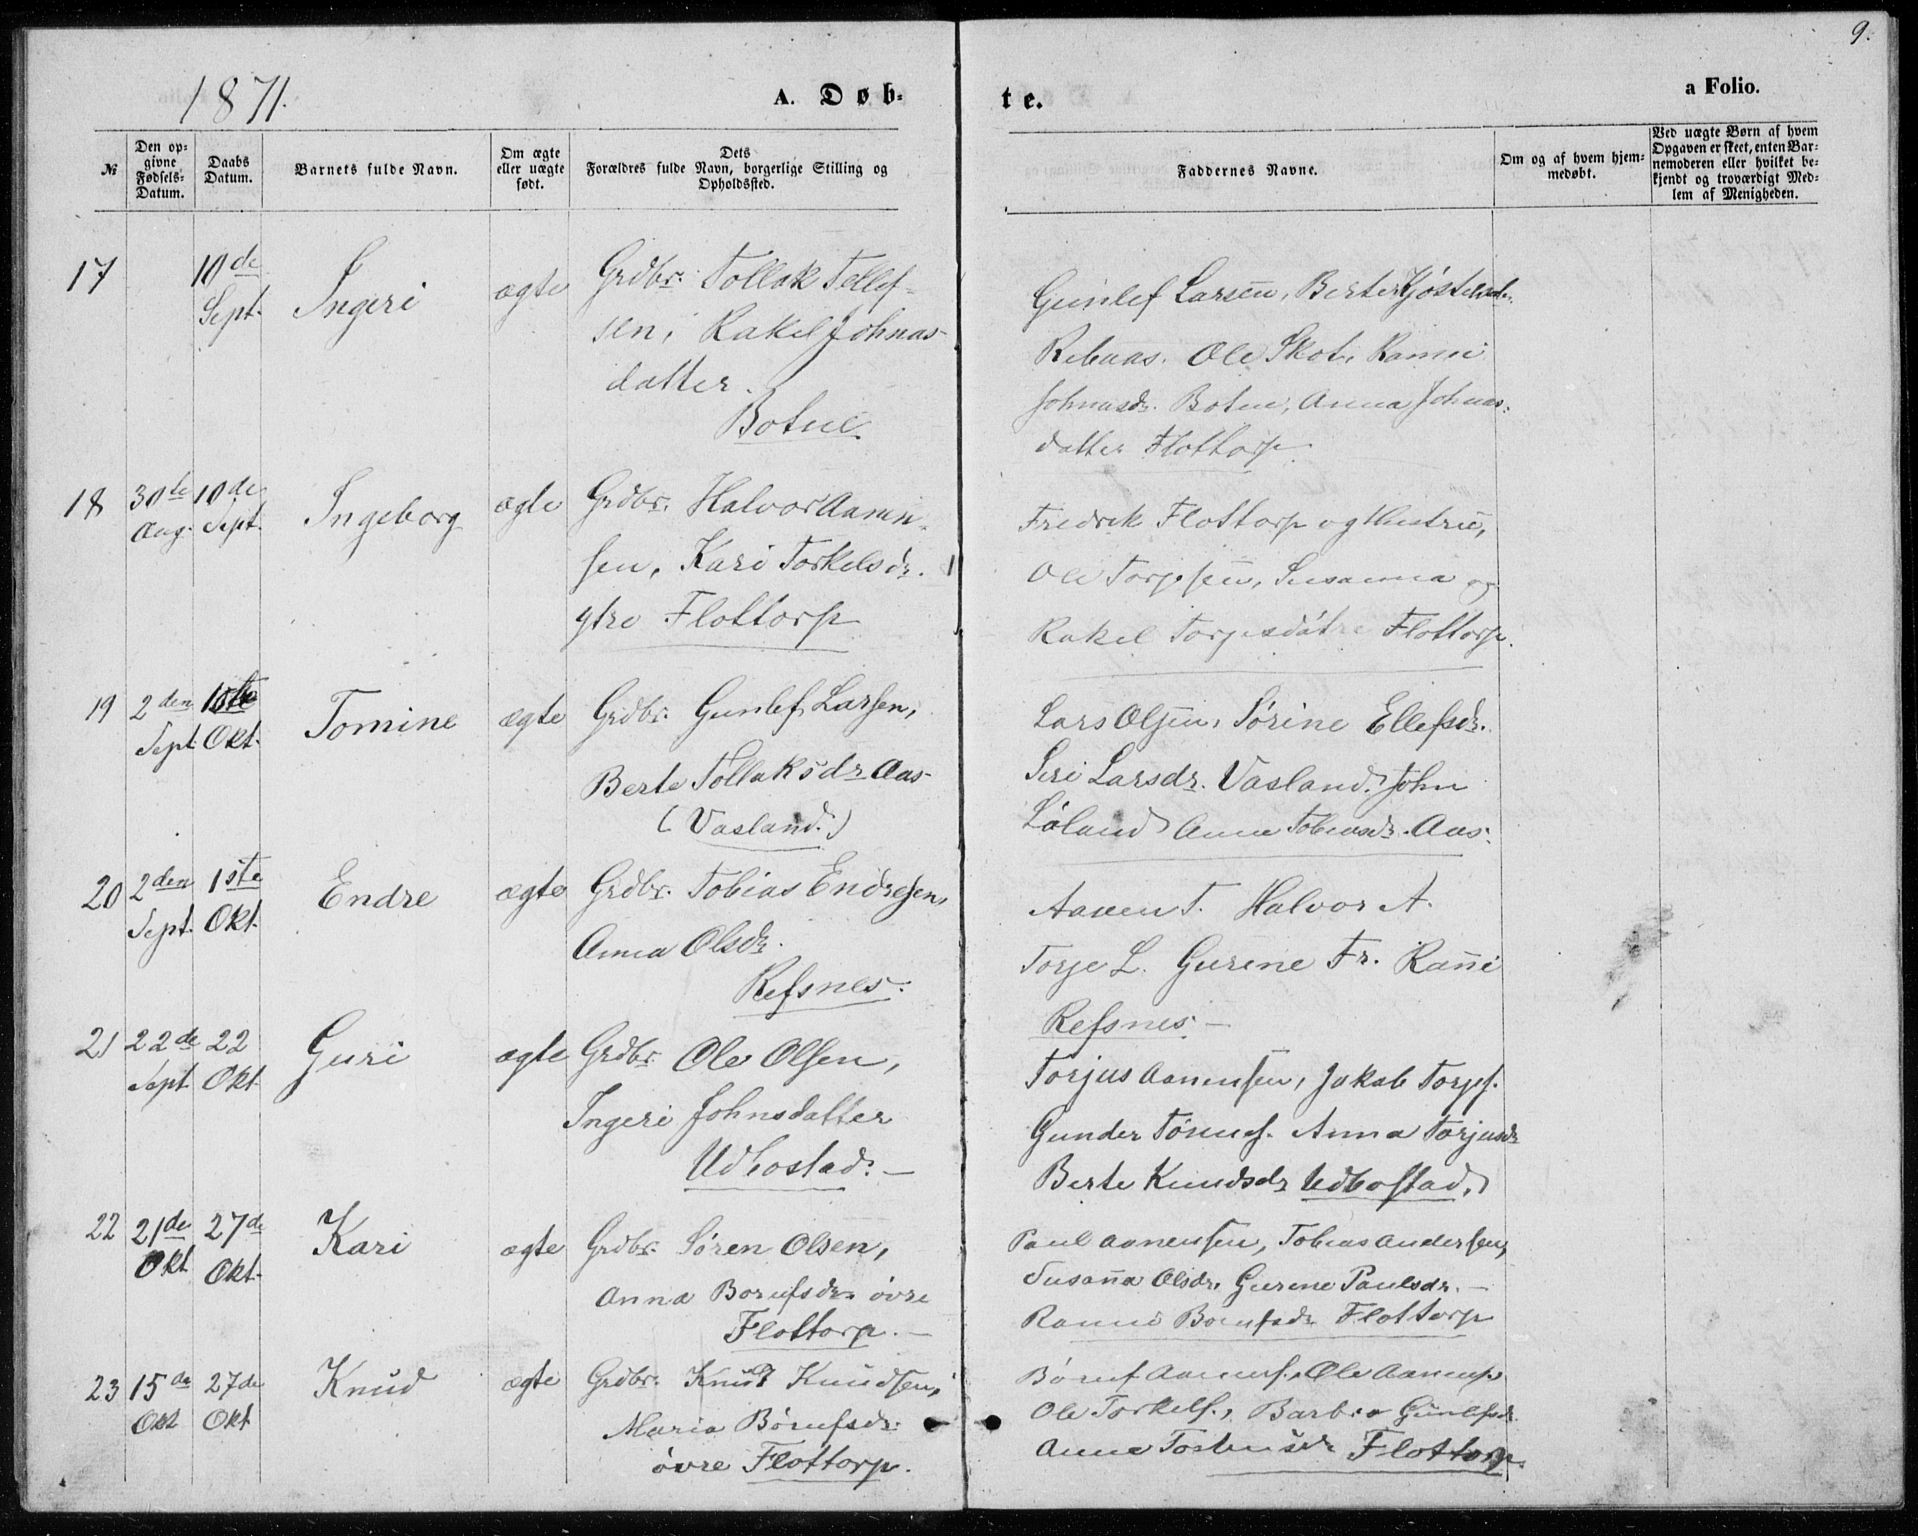 9.
1871.
A. Døb-
te.
a Folio.
№
Den op-
givne
Fødsels-
Datum.
Daabs
Datum.
Barnets fulde Navn.
Om ægte
eller uægte
født.
Dets
Forældres fulde Navn, borgerlige Stilling og
Opholdssted.
Faddernes Navne.
Om og af hvem hjem-
medøbt.
Ved uægte Børn af hvem
Opgaven er skeet, enten Bar-
nemoderen eller hvilket be-
kjendt og troværdigt Med-
lem af Menigheden.
17
10de
Sept.
Ingeri
ægte
Grdbr. Tollak Tellef-
sen, Rakel Johnas-
datter.
Botne.
Gunlef Larsen, Berte
Ole Skot, Ranni
Johnasdr. Botne, Anna Johnas-
datter Flottorp
18
30te
Aug.
10de
Sept.
Ingeborg
ægte
Grdbr. Halvor Aanen-
sen, Kari Torkelsdr.
ytre Flottorp
Fredrik Flottorp og Hustru,
Ole Torjesen, Susanna og
Rakel Torjesdøtre Flottorp.
19
2den
Sept.
1ste
Okt.
Tomine
ægte
Grdbr. Gunlef Larsen,
Berte Tollaksdr Aas-
(Vasland.)
Lars Olsen, Sørine Ellefsdr.
Siri Larsdr. Vasland. John
Løland Anne Tobiasdr. Aas.
20
2den
Sept.
1ste
Okt.
Endre
ægte
Grdbr. Tobias Endresen,
Anna Olsdr.
Refsnes.
Aanen T. Halvor A.
Torje L. Gurine Fr. Rani
Refsnes —
21
22de
Sept
22
Okt
Guri
ægte
Grdbr. Ole Olsen,
Ingeri Johnsdatter
Udbostad. —
Torjus Aanensen, Jakob Torjes.
Gunder Tønnes. Anna Torjusdr
Berte Knudsdr Udbostad.
22
21de
Okt
27de
Okt.
Kari
ægte
Grdbr. Søren Olsen,
Anna Borufsdr. øvre
Flottorp. —
Paul Aanensen, Tobias Andersen,
Susanna Olsdr. Gurine Paulsdr. —
Ranni Borufsdr Flottorp
23
15de
Okt
27de
Okt
Knud
ægte
Grdbr. Knud Knudsen,
Maria Børufsdr.
øvre Flottorp.
Børuf Aanens. Ole Aanens.
Ole Torkels., Barbro Gunlefsdr.
Anne Flottorp.